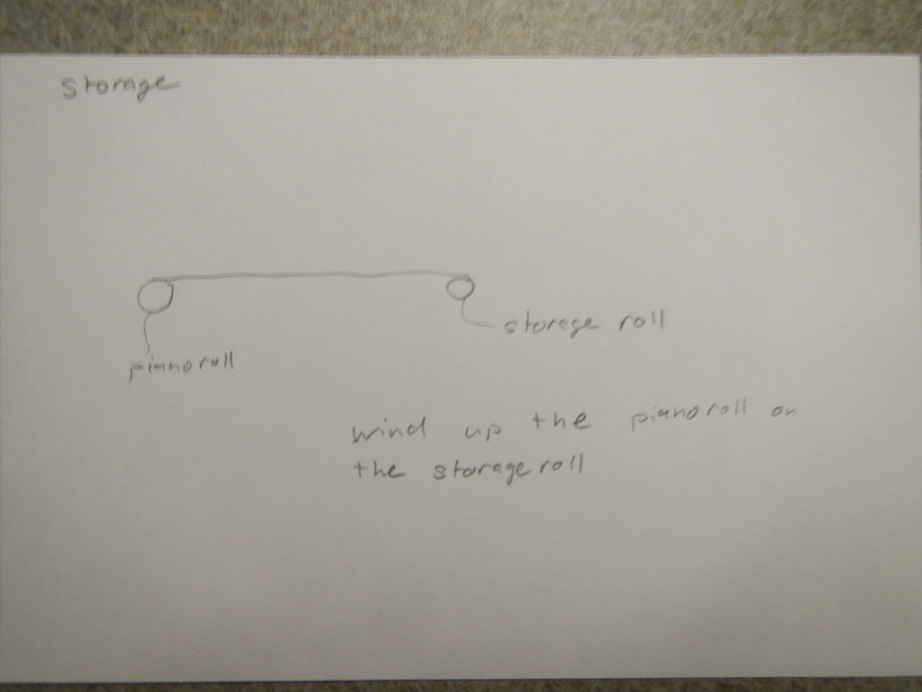 storage
storage roll
pianoroll
wind up the pianoroll on
the storageroll